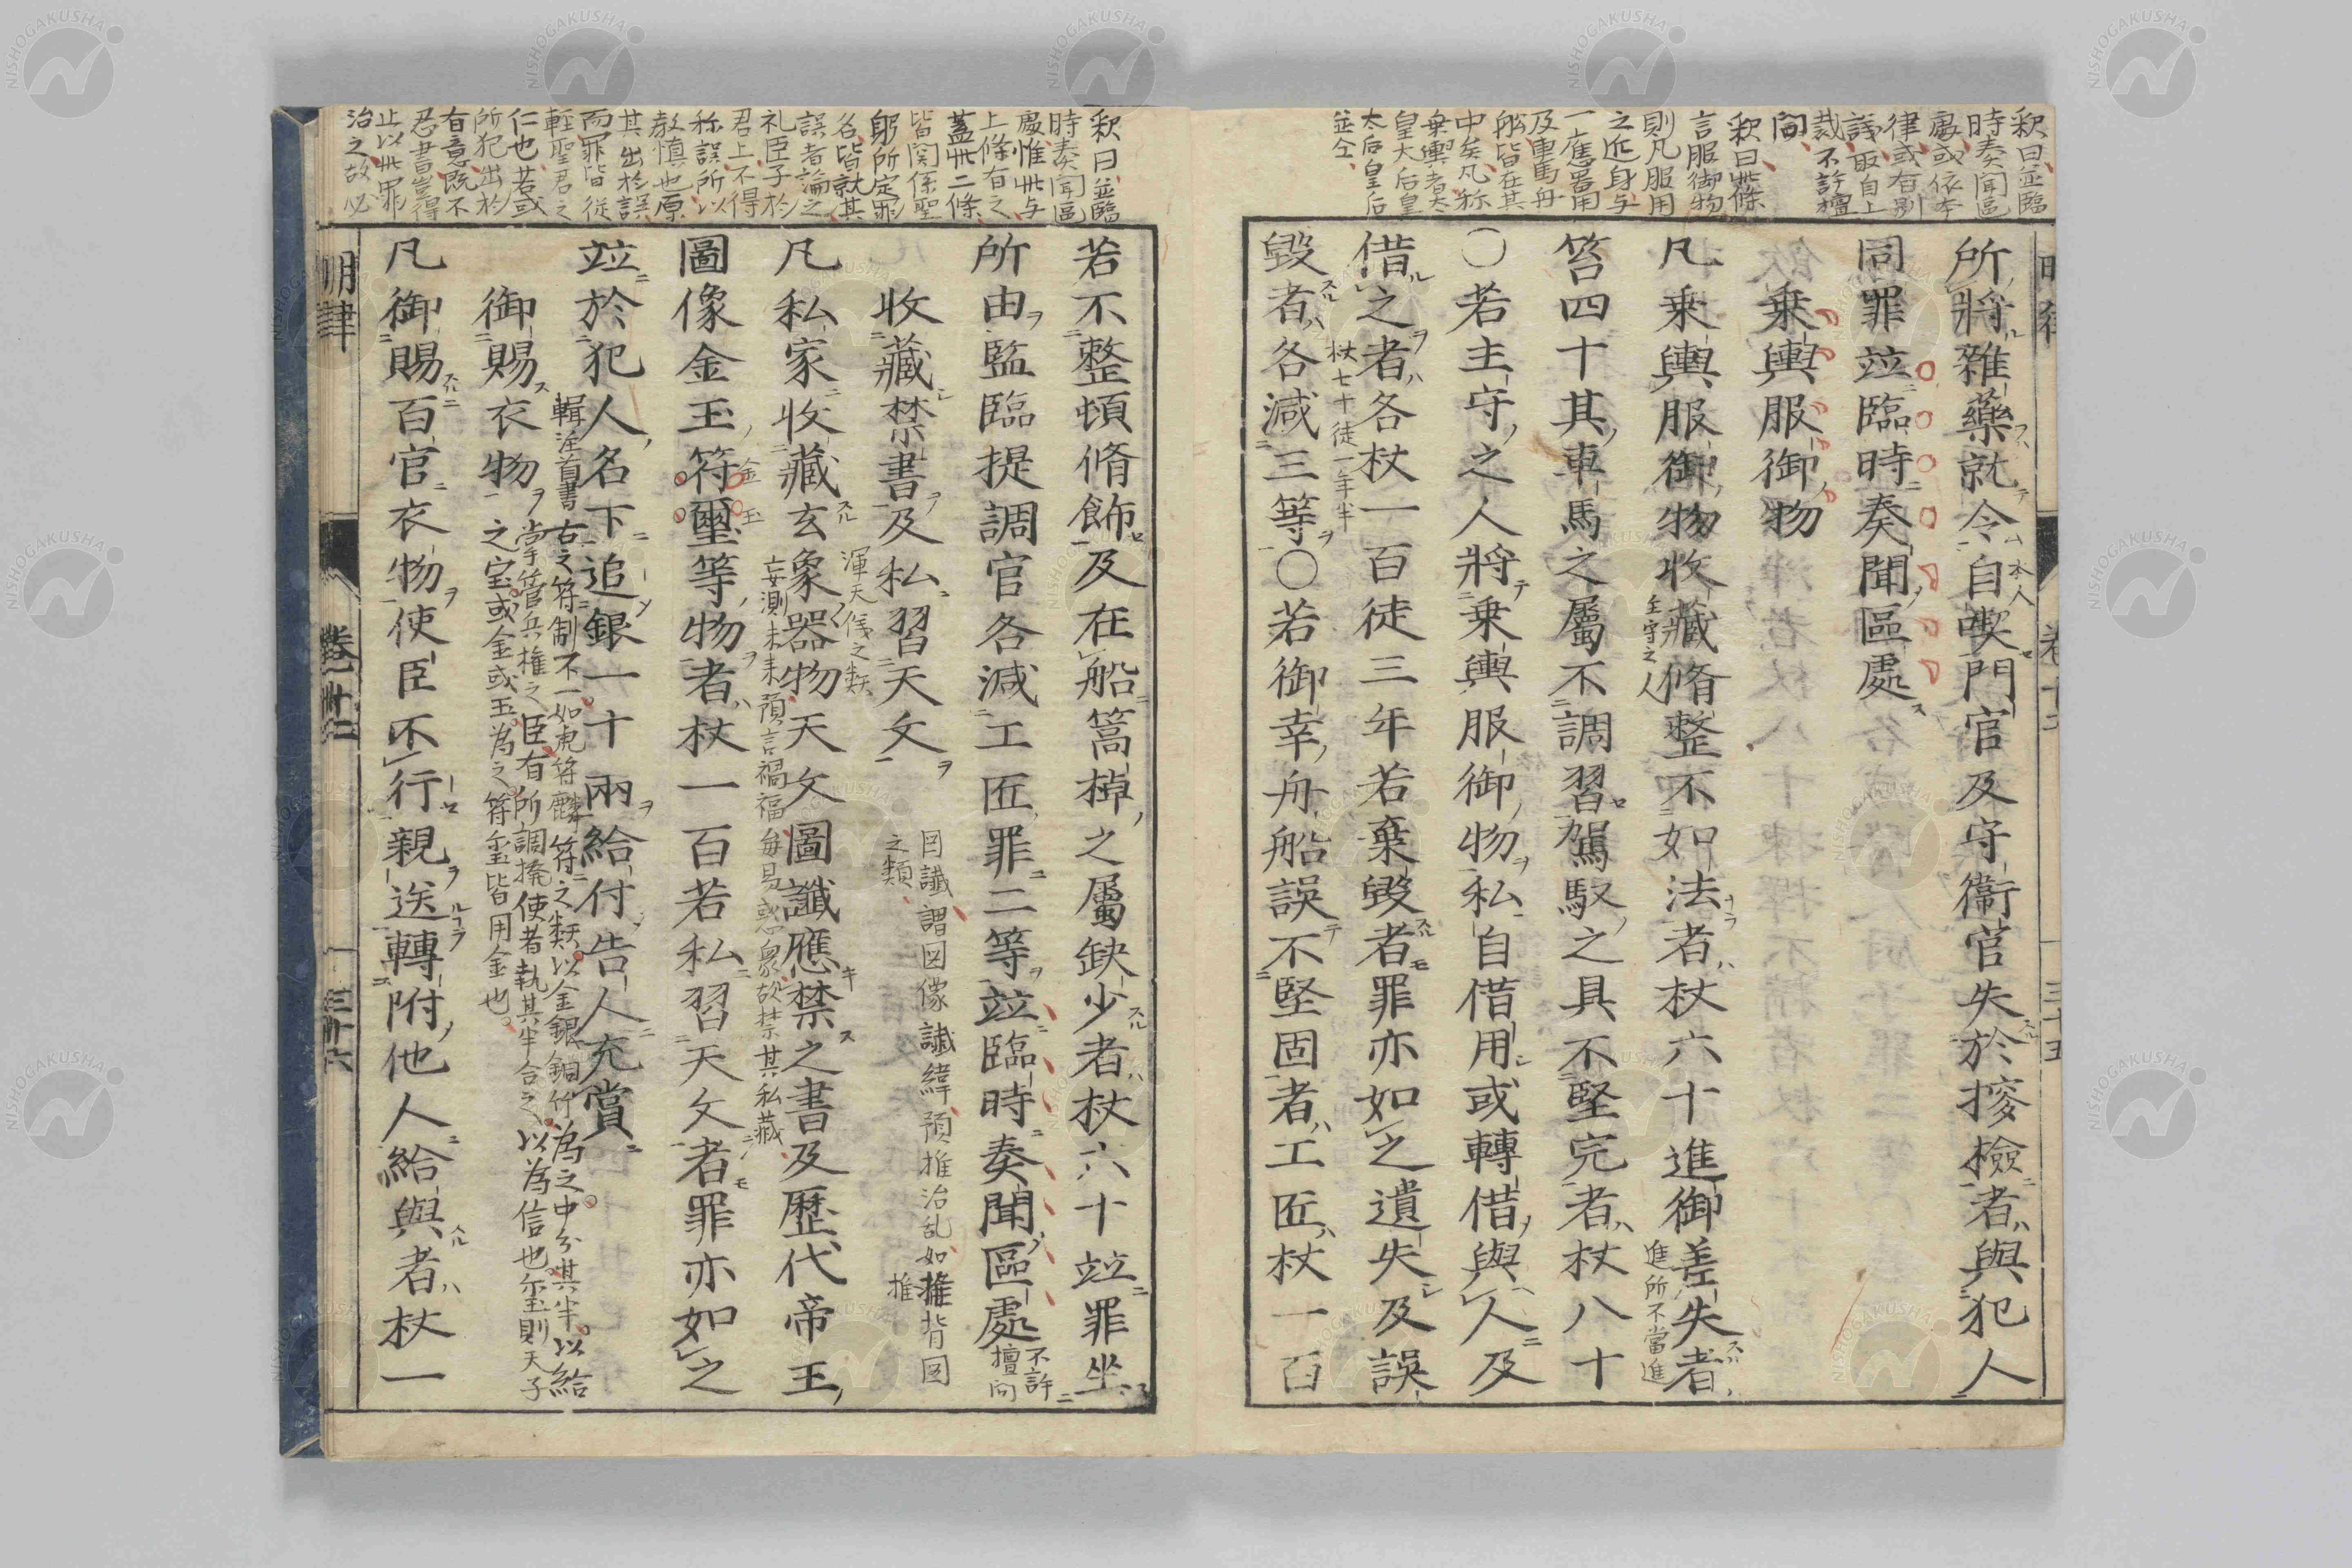 釈曰並臨
時奏聞區
處或依本
律或有別
議取自上
裁不許擅
問
釈曰此條
言服御物
則凡服用
之近身与
一應器用
及車馬舟
舩皆在其
中矣凡称
乗輿者太
皇太后皇
太后皇后
並仝
所將雜藥就令自喫門官及守衞官失於搜檢者與犯人
本人
同罪竝臨時奏聞區處
乗輿服御物
凡乗輿服御物收藏脩整不如法者杖六十進御差失者
主守之人
進所不當進
笞四十其車馬之屬不調習駕馭之具不堅完者杖八十
〇若主守之人將乗輿服御物私自借用或轉借與人及
借之者各杖一百徒三年若棄毀者罪亦如之遺失及誤
毀者各減三等〇若御幸舟船誤不堅固者工匠杖一百
杖七十徒一年半
明律
卷十二
三十五
釈曰並臨
時奏聞區
處惟此与
上條有之
蓋此二條
皆関係聖
躬所定罪
名皆就其
誤者論之
礼臣子於
君上不得
称誤所以
教慎也原
其出於誤
而罪皆従
輕聖君之
仁也若或
所犯出於
有意既不
忍書豈得
止以此罪
治之故必
若不整頓脩飾及在船篙棹之屬缺少者杖六十竝罪坐
所由監臨提調官各減工匠罪二等竝臨時奏聞區處
不許擅问
收藏禁書及私習天文
図讖謂図像讖緯預推治乱如推背図
之類
推
凡私家收藏玄象器物天文圖讖應禁之書及歷代帝王
渾天儀之類
妄測未来預言禍福毎易惑衆故禁其私藏
圖像金玉符璽等物者杖一百若私習天文者罪亦如之
金玉
竝於犯人名下追銀一十兩給付告人充賞
輯注首書
右之符制不一如虎符麟符之類以金銀銅竹為之中分其半以給
掌管兵権之臣有所調撥使者執其半合之以為信也玺則天子
之宝或金或玉為之符玺皆用金也
御賜衣物
凡御賜百官衣物使臣不行親送轉附他人給與者杖一
明律
卷十二
三十六